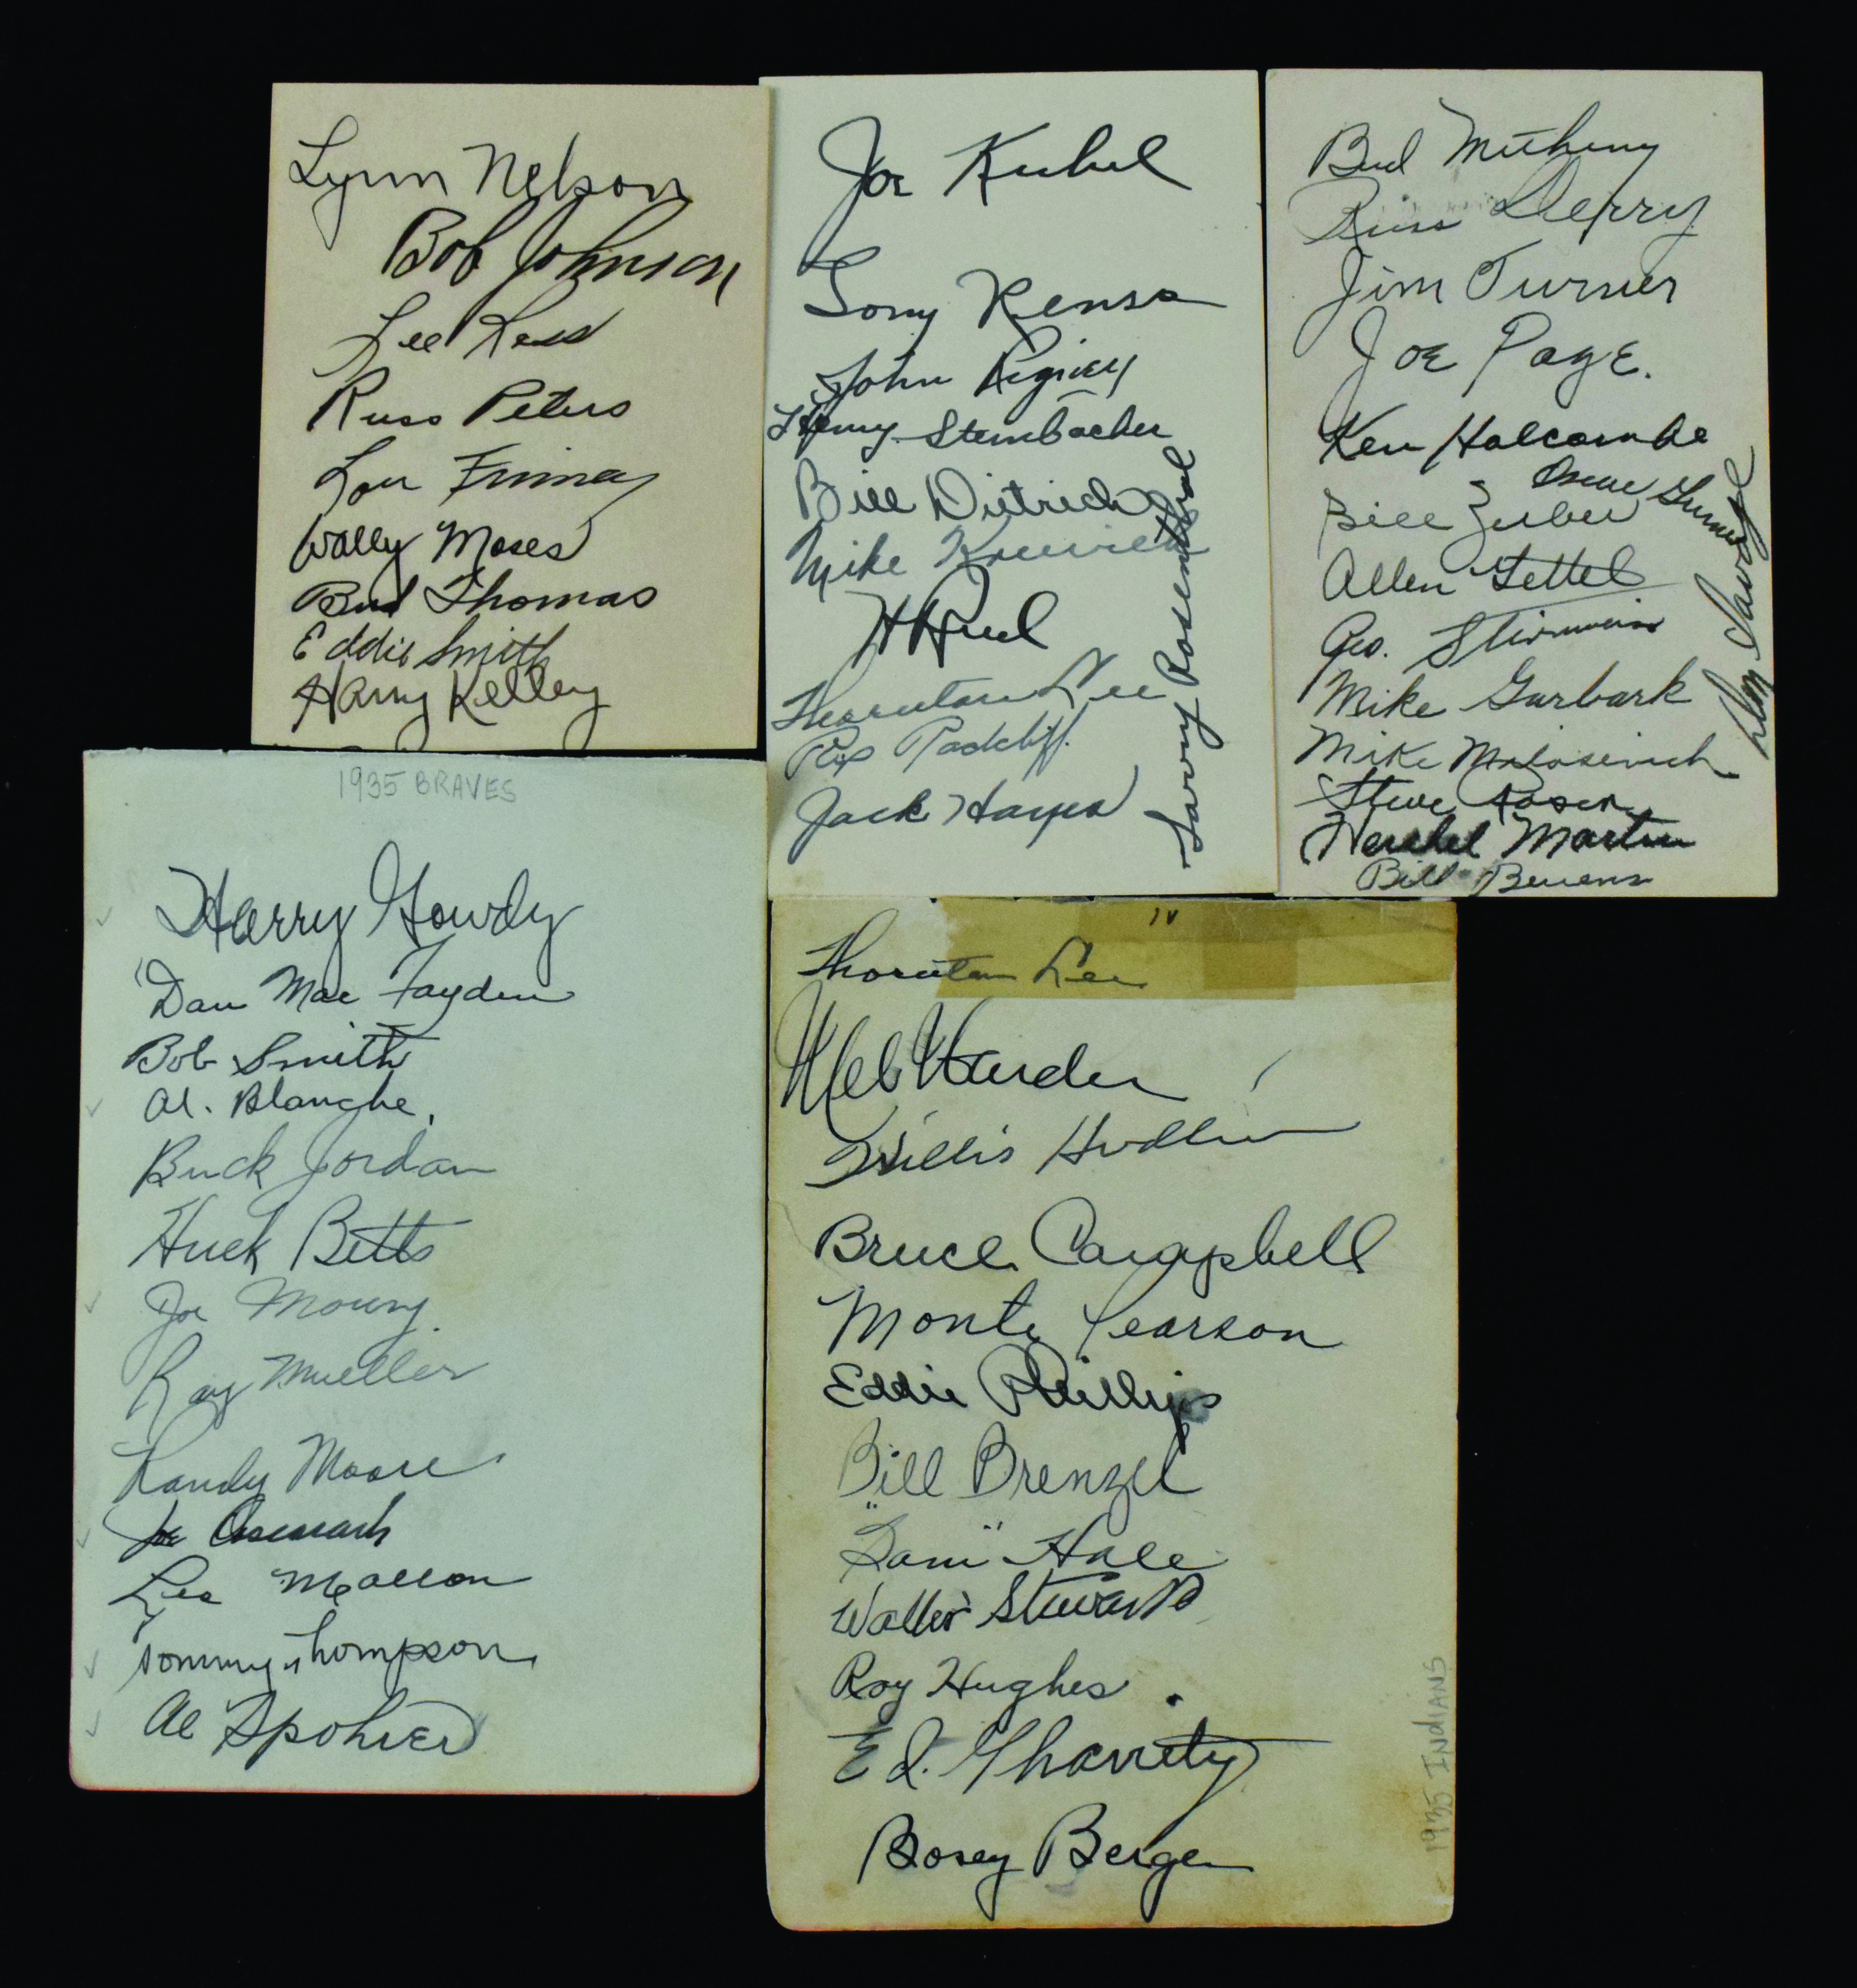 Lynn Nelson
Bob Johnson
Lee Ross
Russ Peters
Lou Finney
Wally Moses
Bud Thomas
Eddie Smith
Harry Kelley
Joe Kuhel
Tony Rensa
John Rigney
Henry Steinbacher
Bill Dietrich
Mike Kreevich
Thornton Lee
Rip Radcliff
Jack Hayes
Larry Rosenthal
Bud Metheny
Russ Derry
Jim Turner
Joe Page.
Ken Holcombe
Oscar Grimes
Bill Zuber
Allen Gettel
Geo. Stirnweiss
Mike Garbark
Mike Milosevich
Steve Roser
Hershel Martin
Bill Bevens
Don Savage
1935 BRAVES
Harry Gowdy
Dan MacFayden
Bob Smith
Al. Blanche.
Buck Jordan
Huck Betts
Joe Mowry.
Ray Mueller
Randy Moore
Les Mallon
Tommy Thompson
Al Spohrer
IV
Thornton Lee
Mel Harder
Willis Hudlin
Bruce Campbell
Monte Pearson
Eddie Phillips
Bill Brenzel
"Sam" Hale
Walter Stewart
Roy Hughes.
Ed. Gharrity
Bosey Berger
1935 INDIANS